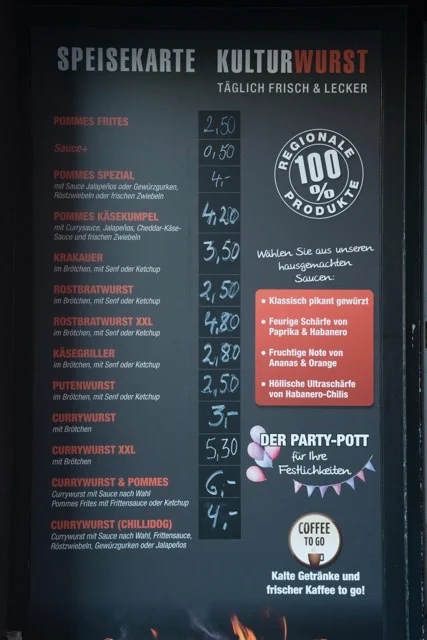 SPEISEKARTE KULTURWURST
TÄGLICH FRISCH & LECKER
POMMES FRITES 2,50
Sauce+ 0,50
POMMES SPEZIAL 4,-
mit Sauce Jalapeños oder Gewürzgurken,
Röstzwiebeln oder frischen Zwiebeln
POMMES KÄSEKUMPEL 4,20
mit Currysauce, Jalapeños, Cheddar-Käse-
Sauce und frischen Zwiebeln
KRAKAUER 3,50
im Brötchen, mit Senf oder Ketchup
ROSTBRATWURST 2,50
im Brötchen, mit Senf oder Ketchup
ROSTBRATWURST XXL 4,80
im Brötchen, mit Senf oder Ketchup
KÄSEGRILLER 2,80
im Brötchen, mit Senf oder Ketchup
PUTENWURST 2,50
im Brötchen, mit Senf oder Ketchup
CURRYWURST 3,-
mit Brötchen
CURRYWURST XXL 5,30
mit Brötchen
CURRYWURST & POMMES 6,-
Currywurst mit Sauce nach Wahl
Pommes Frites mit Frittensauce oder Ketchup
CURRYWURST (CHILLIDOG) 4,-
Currywurst mit Sauce nach Wahl, Frittensauce,
Röstzwiebeln, Gewürzgurken oder Jalapeños
REGIONALE
100
%
PRODUKTE
Wählen Sie aus unseren
hausgemachten
Saucen:
• Klassisch pikant gewürzt
• Feurige Schärfe von
Paprika & Habanero
• Fruchtige Note von
Ananas & Orange
• Höllische Ultraschärfe
von Habanero-Chilis
DER PARTY-POTT
für Ihre
Festlichkeiten
COFFEE
TO GO
Kalte Getränke und
frischer Kaffee to go!